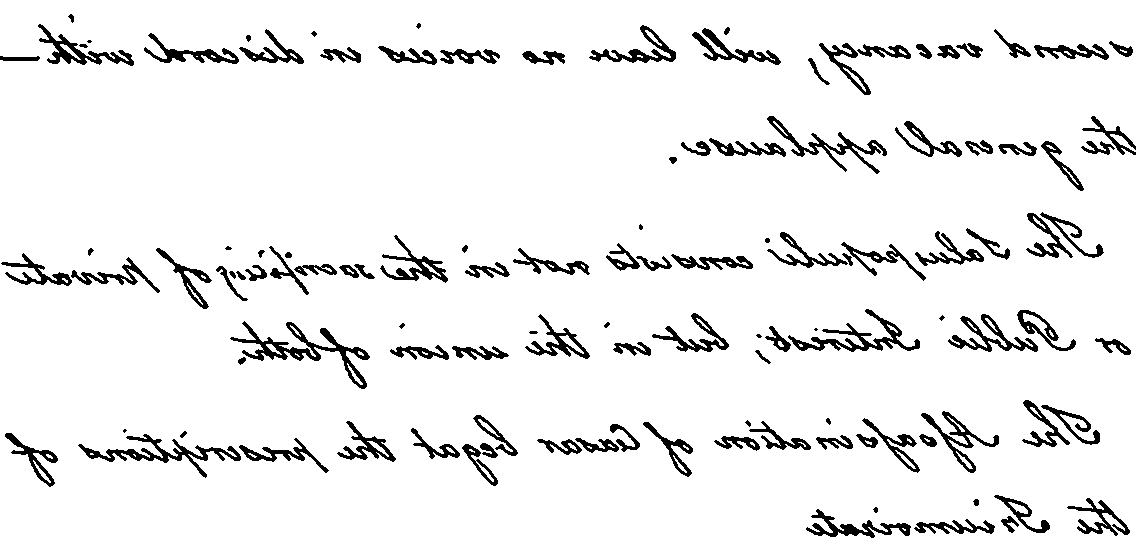 second vacancy, will leave no voices in discord with
the general applause.
The Salus populi consists not in the sacrificing of private
or Public Interest; but in the union of both.
The Assassination of Ceasar begat the proscriptions of
the Triumvirate